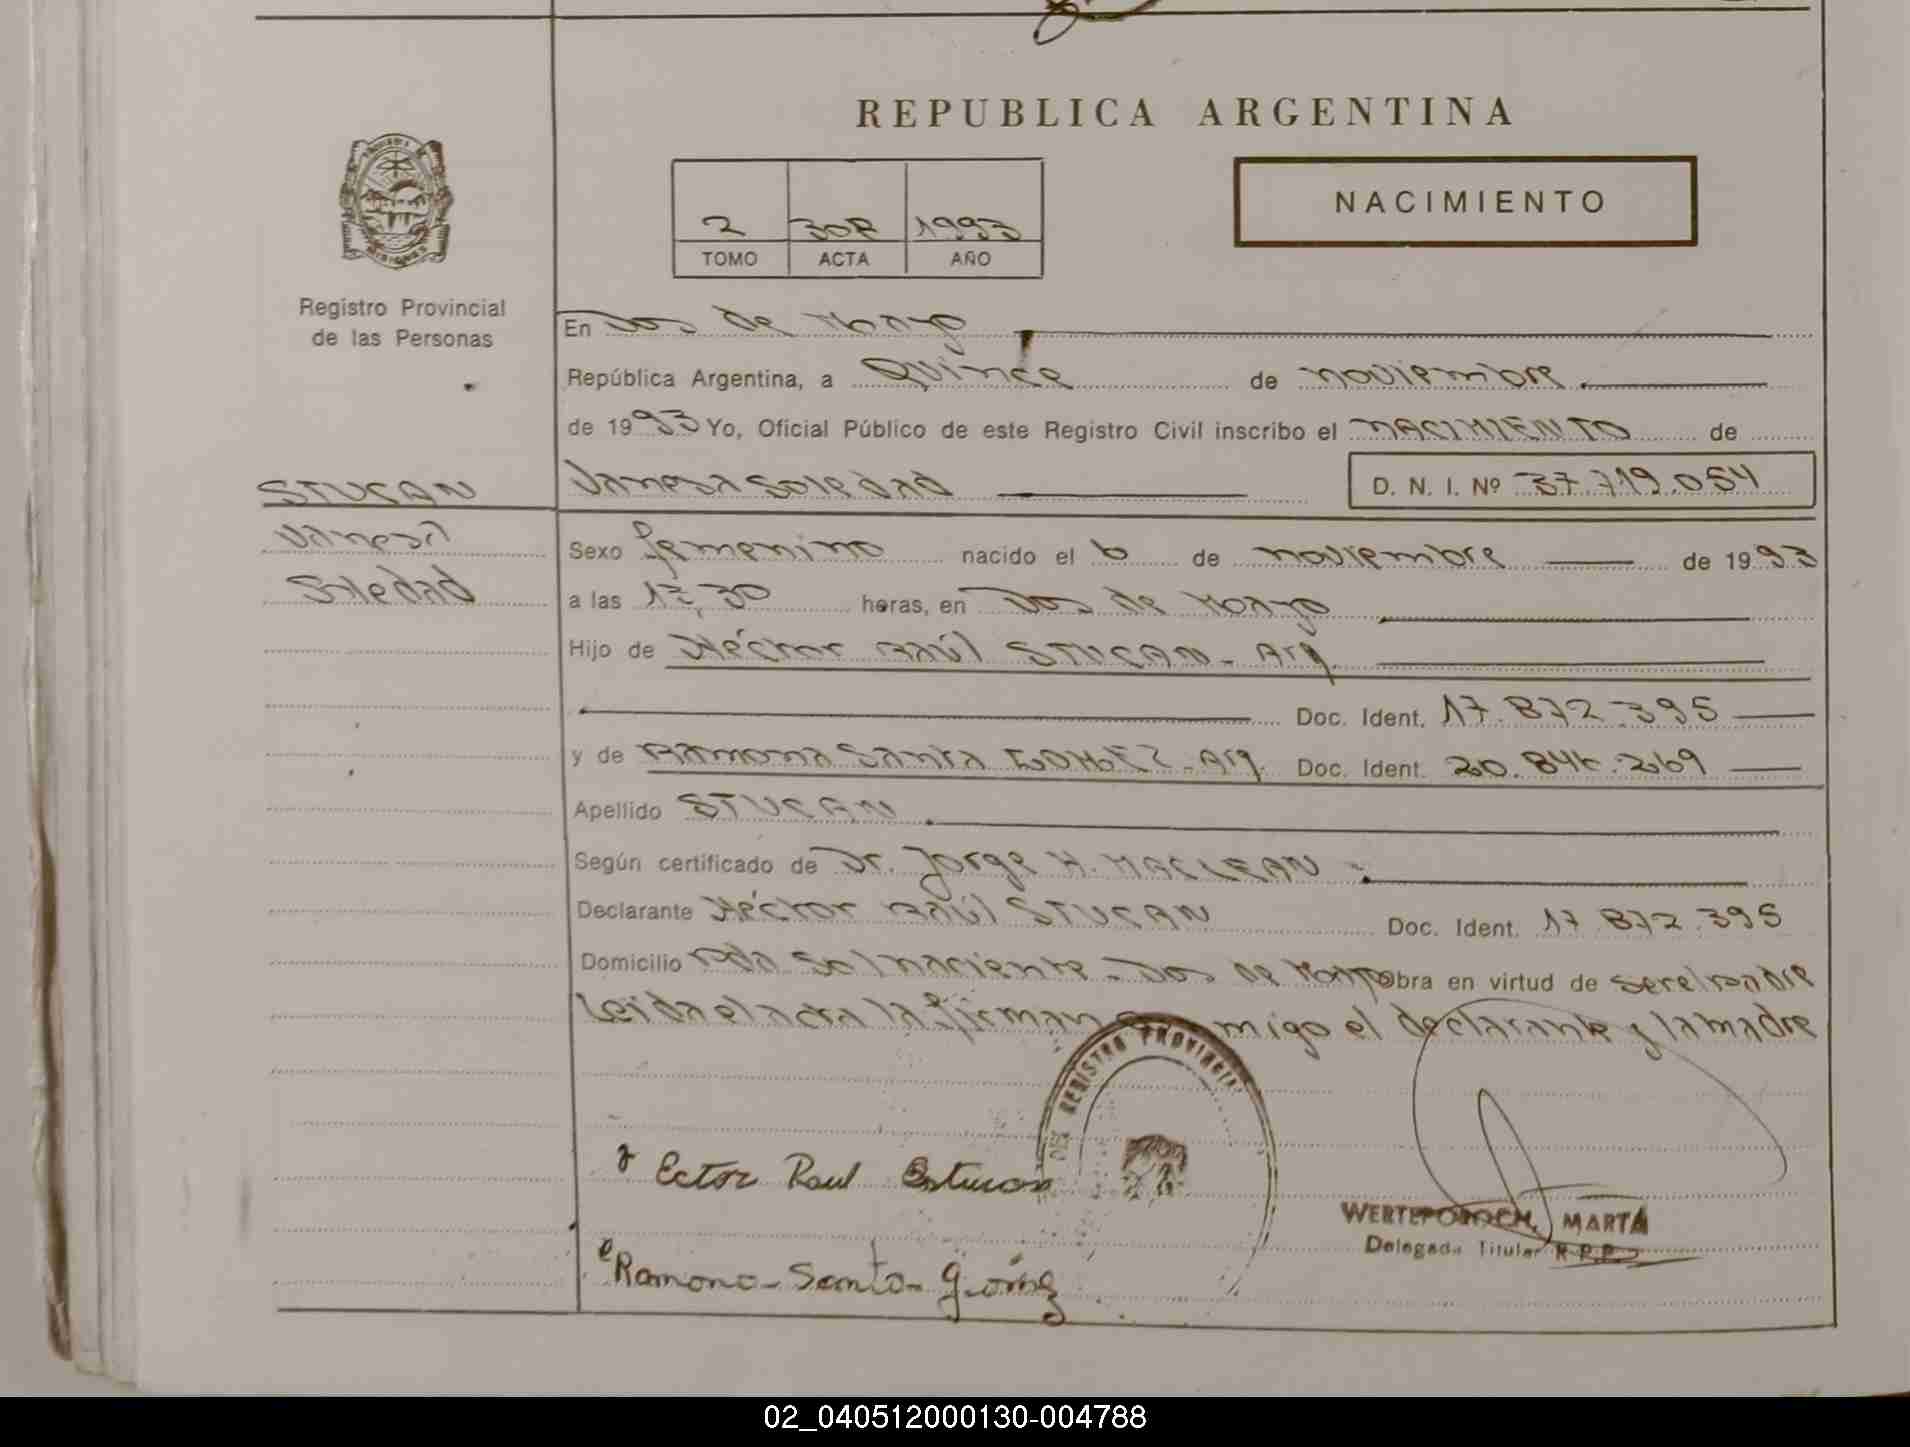 REPUBLICA ARGENTINA
NACIMIENTO
2 308 1993
TOMO ACTA AÑO
Registro Provincial
de las Personas
En Dos de Mayo
República Argentina, a Quince de noviembre
de 1993 Yo, Oficial Público de este Registro Civil inscribo el NACIMIENTO de
STUCAN
Vanesa
Soledad
Vanesa Soledad D. N. I. Nº 37.719.054
Sexo femenino nacido el 6 de noviembre de 1993
a las 17,30 horas, en Dos de Mayo
Hijo de Héctor Raúl STUCAN - Arg.
Doc. Ident. 17.872.395
y de Ramona Santa GOMEZ - Arg. Doc. Ident. 20.846.269
Apellido STUCAN
Según certificado de Dr. Jorge H. MACLEAN
Declarante Héctor Raúl STUCAN Doc. Ident. 17.872.395
Domicilio Sol naciente - Dos de Mayo obra en virtud de ser el padre
Leida el acta la firman migo el declarante y la madre
REGISTRO PROVINCIAL
Ector Raul Estucan
WERTEPOROCH, MARTA
Delegada Titular R.P.P.
Ramona - Santa - gómez
02_040512000130-004788